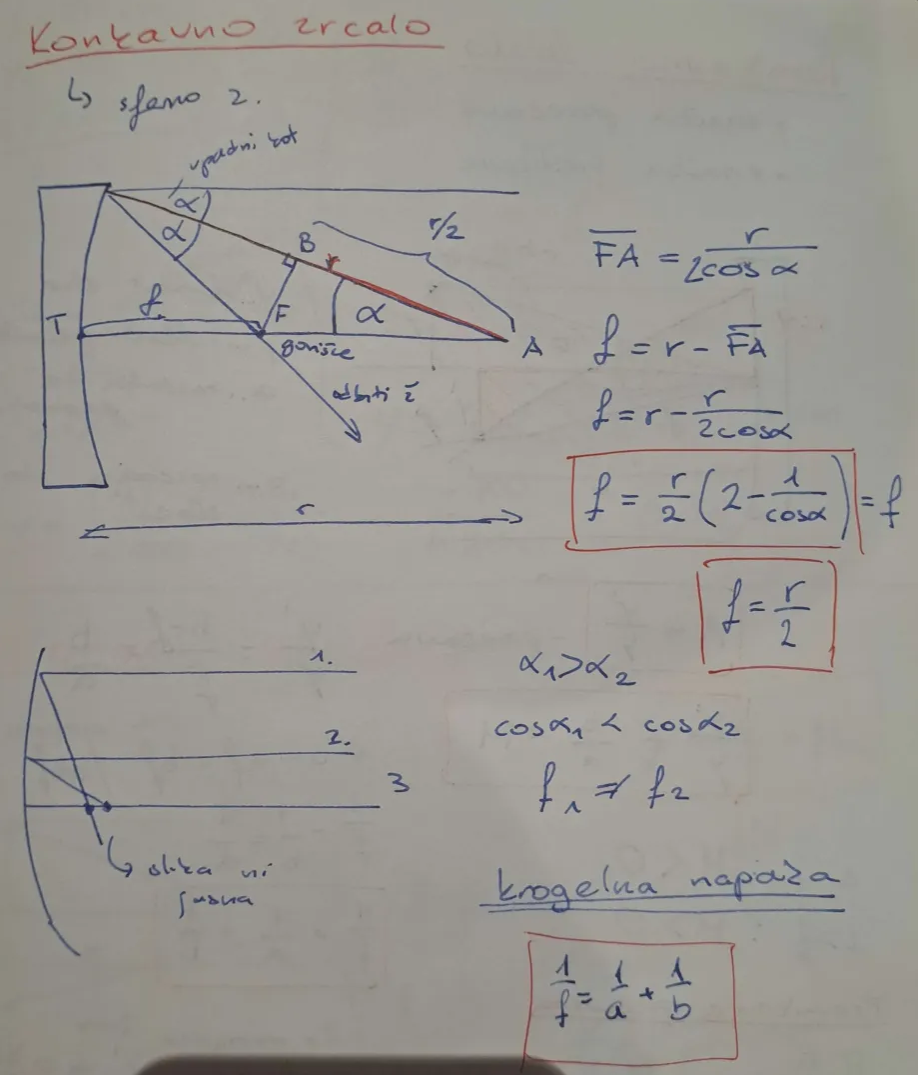 Konkavno zrcalo
↳ sferno z.
vpadni kot
α
α
r/2
B
r
f
T
F
α
A
gorišče
odbiti ž
r
F̅A̅ = r/(2cosα)
f = r - F̅A̅
f = r - r/(2cosα)
f = r/2 (2 - 1/cosα) = f
f = r/2
1.
2.
3
↳ slika ni
jasna
α₁ > α₂
cosα₁ < cosα₂
f₁ ≠ f₂
krogelna napaka
1/f = 1/a + 1/b